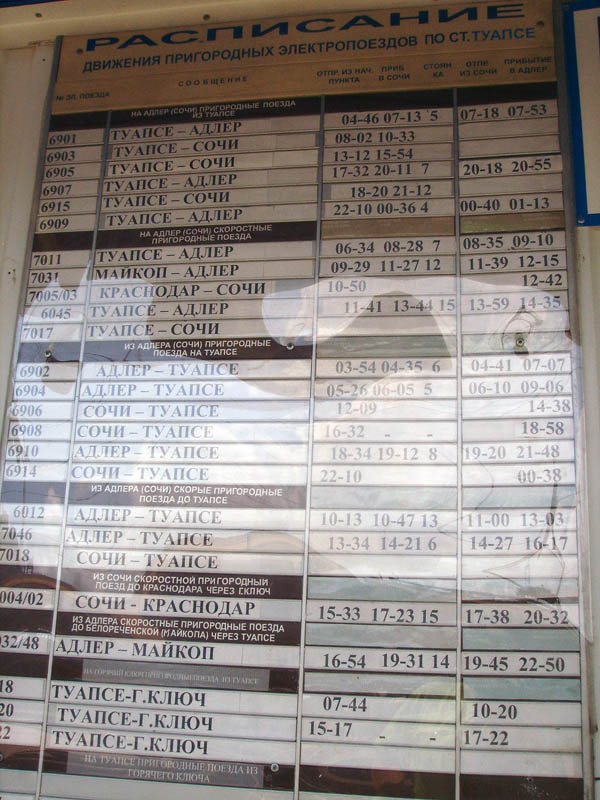 РАСПИСАНИЕ
ДВИЖЕНИЯ ПРИГОРОДНЫХ ЭЛЕКТРОПОЕЗДОВ ПО СТ.ТУАПСЕ
№ ЭЛ. ПОЕЗДА СООБЩЕНИЕ ОТПР. ИЗ НАЧ. ПУНКТА ПРИБ В СОЧИ СТОЯН КА ОТПР. ИЗ СОЧИ ПРИБЫТИЕ В АДЛЕР
НА АДЛЕР (СОЧИ) ПРИГОРОДНЫЕ ПОЕЗДА
ИЗ ТУАПСЕ
6901 ТУАПСЕ – АДЛЕР 04-46 07-13 5 07-18 07-53
6903 ТУАПСЕ – СОЧИ 08-02 10-33
6905 ТУАПСЕ – СОЧИ 13-12 15-54
6907 ТУАПСЕ – АДЛЕР 17-32 20-11 7 20-18 20-55
6915 ТУАПСЕ – СОЧИ 18-20 21-12
6909 ТУАПСЕ – АДЛЕР 22-10 00-36 4 00-40 01-13
НА АДЛЕР (СОЧИ) СКОРОСТНЫЕ
ПРИГОРОДНЫЕ ПОЕЗДА
7011 ТУАПСЕ – АДЛЕР 06-34 08-28 7 08-35 09-10
7031 МАЙКОП – АДЛЕР 09-29 11-27 12 11-39 12-15
7005/03 КРАСНОДАР – СОЧИ 10-50 12-42
6045 ТУАПСЕ – АДЛЕР 11-41 13-44 15 13-59 14-35
7017 ТУАПСЕ – СОЧИ
ИЗ АДЛЕРА (СОЧИ) ПРИГОРОДНЫЕ
ПОЕЗДА НА ТУАПСЕ
6902 АДЛЕР – ТУАПСЕ 03-54 04-35 6 04-41 07-07
6904 АДЛЕР – ТУАПСЕ 05-26 06-05 5 06-10 09-06
6906 СОЧИ – ТУАПСЕ 12-09 14-38
6908 СОЧИ – ТУАПСЕ 16-32 - - 18-58
6910 АДЛЕР – ТУАПСЕ 18-34 19-12 8 19-20 21-48
6914 СОЧИ – ТУАПСЕ 22-10 00-38
ИЗ АДЛЕРА (СОЧИ) СКОРЫЕ ПРИГОРОДНЫЕ
ПОЕЗДА ДО ТУАПСЕ
6012 АДЛЕР – ТУАПСЕ 10-13 10-47 13 11-00 13-03
7046 АДЛЕР – ТУАПСЕ 13-34 14-21 6 14-27 16-17
7018 СОЧИ – ТУАПСЕ
ИЗ СОЧИ СКОРОСТНОЙ ПРИГОРОДНЫЙ
ПОЕЗД ДО КРАСНОДАРА ЧЕРЕЗ Г.КЛЮЧ
004/02 СОЧИ - КРАСНОДАР 15-33 17-23 15 17-38 20-32
ИЗ АДЛЕРА СКОРОСТНЫЕ ПРИГОРОДНЫЕ ПОЕЗДА
ДО БЕЛОРЕЧЕНСКОЙ (МАЙКОПА) ЧЕРЕЗ ТУАПСЕ
032/48 АДЛЕР – МАЙКОП 16-54 19-31 14 19-45 22-50
НА ГОРЯЧИЙ КЛЮЧ ПРИГОРОДНЫЕ ПОЕЗДА ИЗ ТУАПСЕ
18 ТУАПСЕ-Г.КЛЮЧ 07-44 10-20
20 ТУАПСЕ-Г.КЛЮЧ 15-17 - - 17-22
22 ТУАПСЕ-Г.КЛЮЧ
НА ТУАПСЕ ПРИГОРОДНЫЕ ПОЕЗДА ИЗ
ГОРЯЧЕГО КЛЮЧА